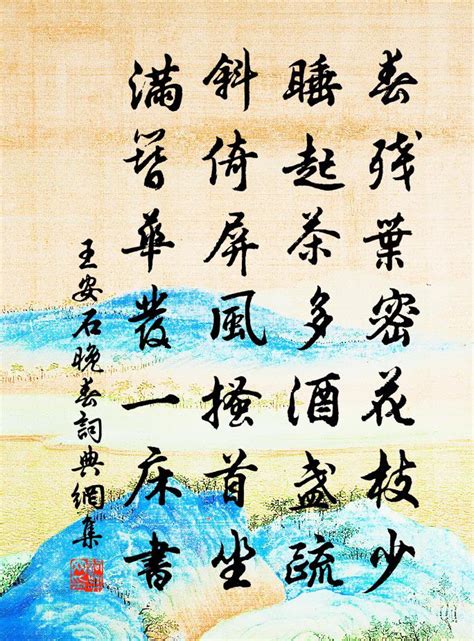 春残葉密花枝少
睡起茶多酒盏疏
斜倚屏風搔首坐
满簪華發一床書
王安石晚春詞典網集